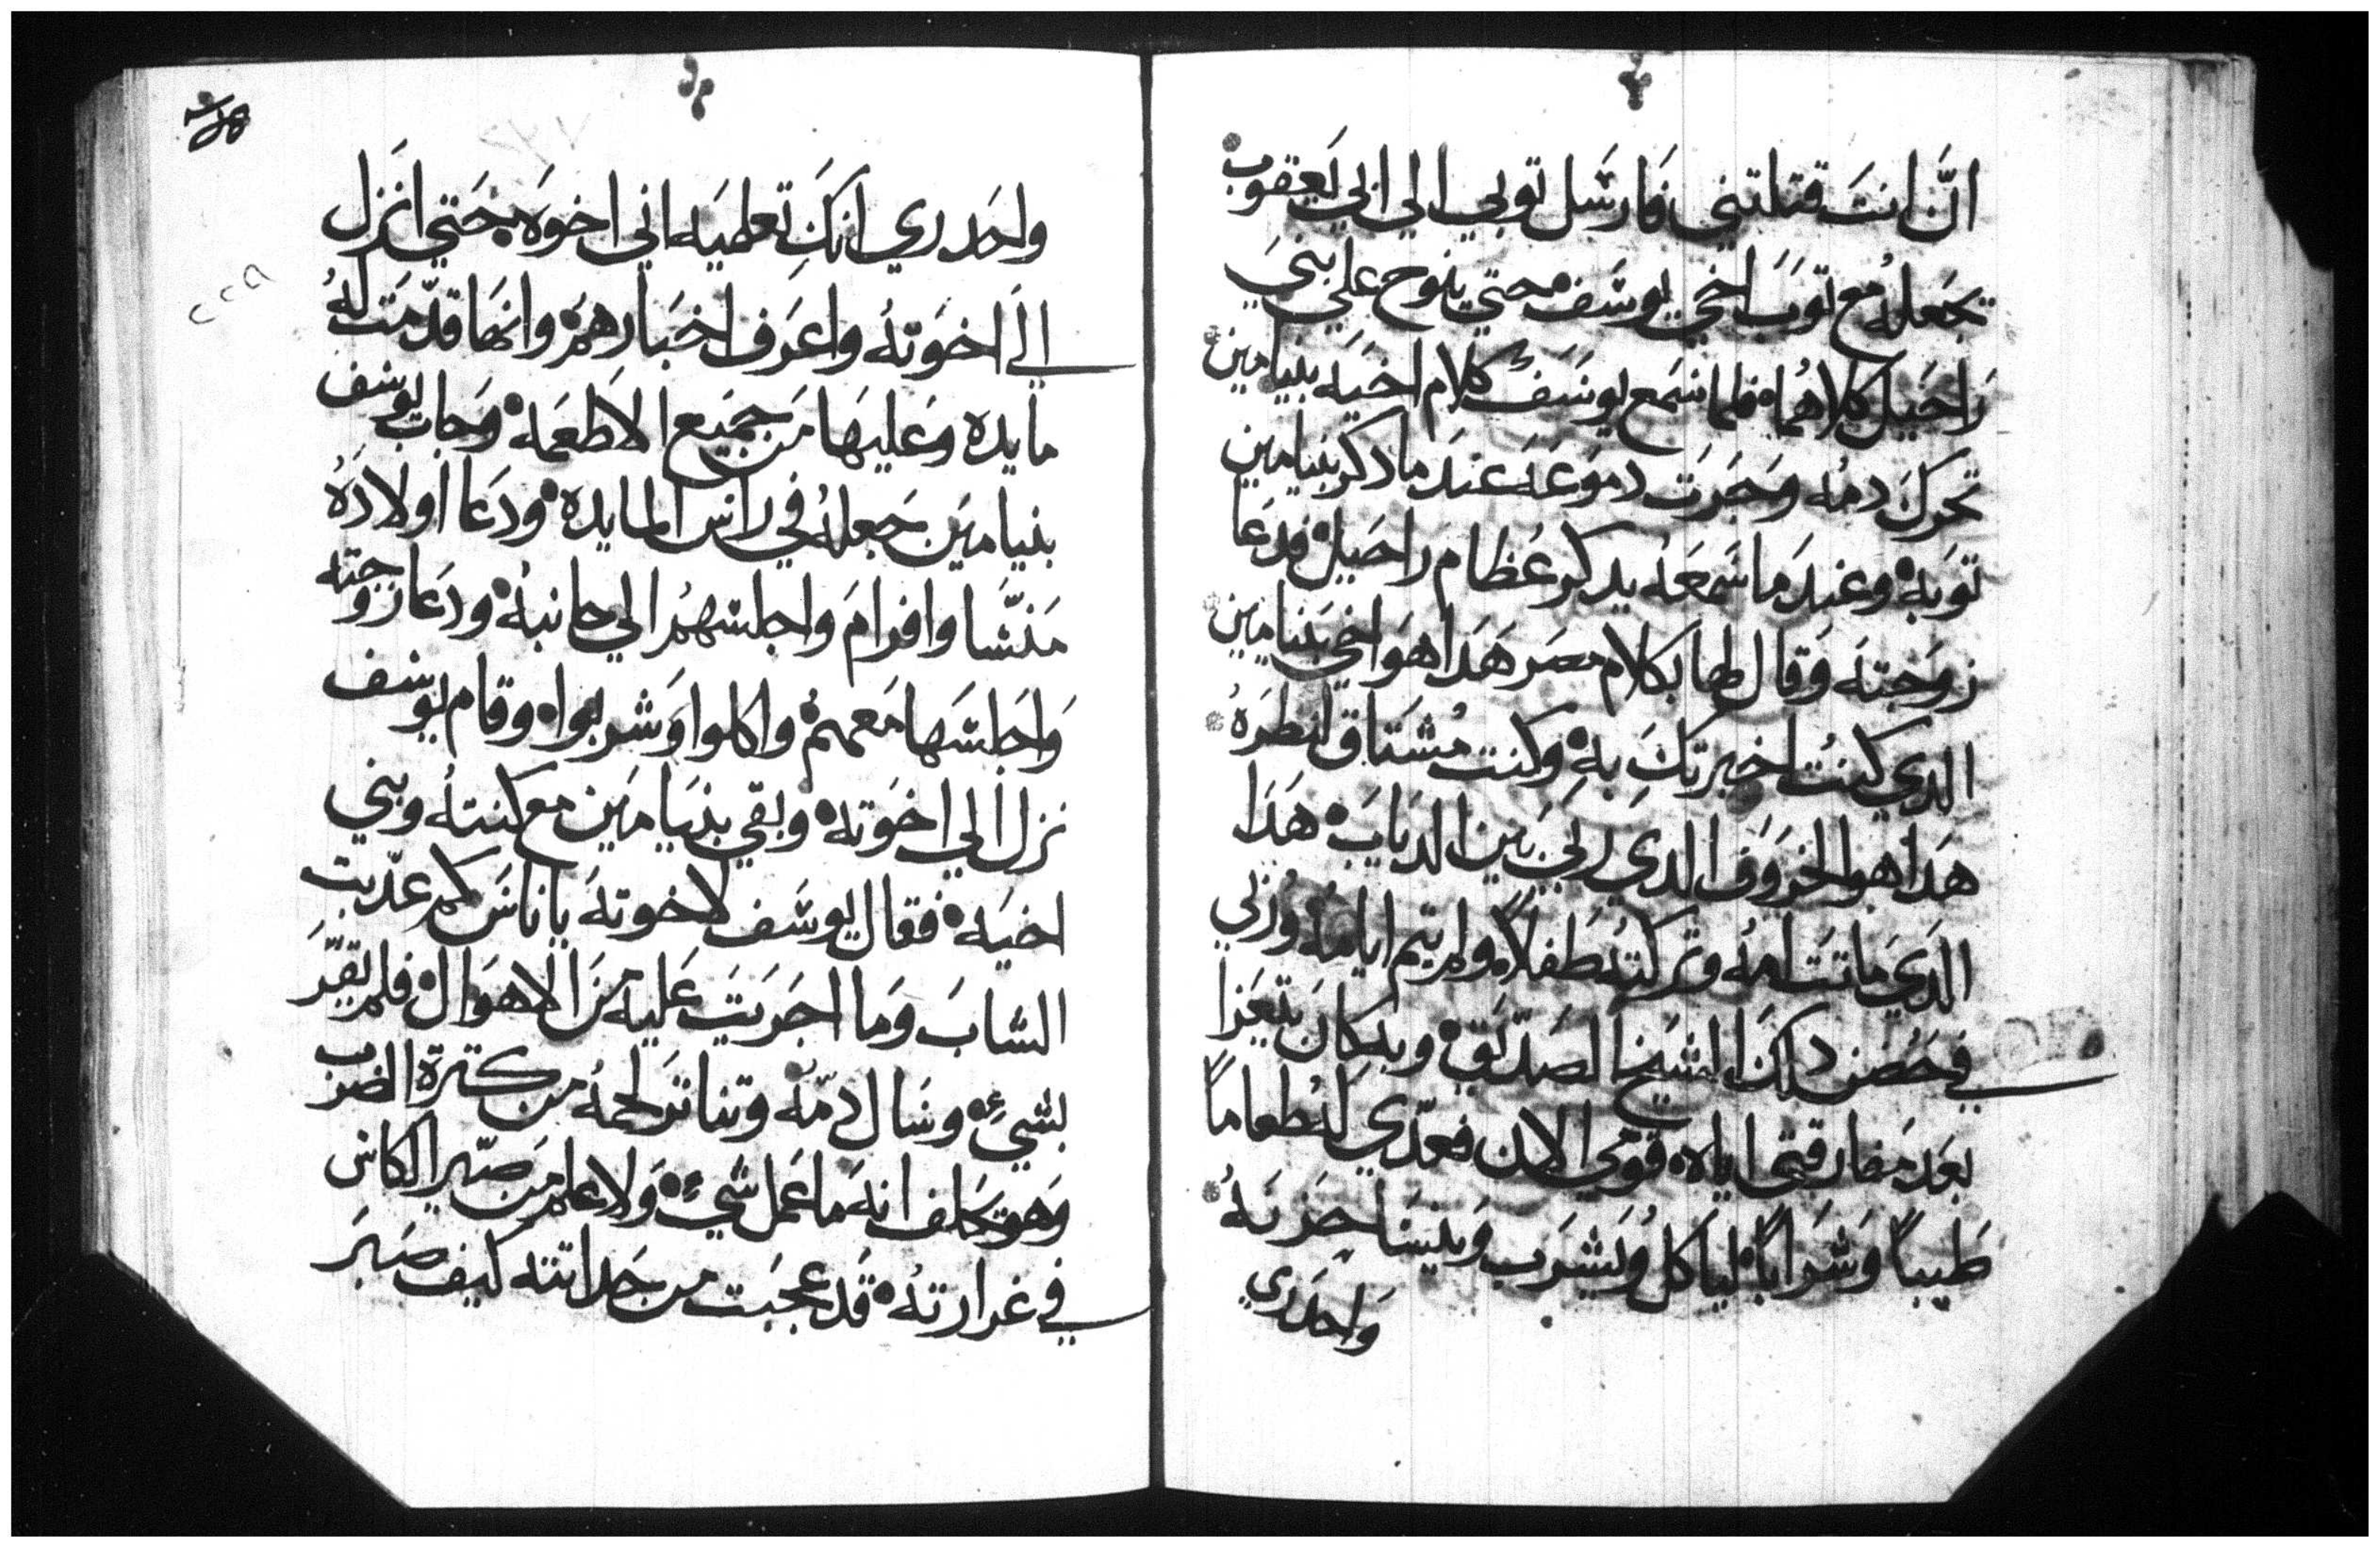 انّ انتَ قتلتني فارسَل توبي الي ابي يَعقوب
تجَعلهُ مع توبَ اخي يوسَف حتي ينوح علي بنيَ
رَاحَيل كلاهُما فلما سَمع يوسَف كلام اخيَه بنيامين
تحركَ دمهُ وجَرَت دموَعَهَ عندَ ما دكر بنيامين
توبَهُ وعندَ ما سَمعَهُ يدكر عُظام راحيل فدعَا
زوجَتهَ وَقال لها بكلام مصر هَدا هوَ اخي بنيامين
الدي كنتُ اخبرتكَ بهِ وكنت مُشتاق انظرَهُ
هَدا هوا الخروَف الدي ربيَ بَين الديابَ هَدَا
الدَي ماتتَ امهُ وتركتهُ طَفلاً ولم يتم ايامهُ ورُبي
في حَضن دلكَ الشيَخ الصدّيَق وبهِ كانَ يتعَزا
بعَد مَفارقتي اياه قومي الان فعدّي لهُ طعاماً
طَيباً وَشَراباً لياكل ويَشرَب وَينسَا حزنهُ
وَاحدَري
٢٢٩
واحَدري انكَ تعلميَه اني اخوَه حَتي انَزل
الي اخوَتهُ واعرَف اخبَارهمَ وانهَا قدّمَت لهُ
مايده وعَليهَا مَن جميَع الاطعَمه وَجاب يوسَف
بنيامَين جَعلهُ في راس المايده ودَعا اولادَهُ
مَنسّا وافرامَ وَاجلسَهمُ الي جانبهُ ودعَا زوجَته
وَاجَلسَها مَعهمُ واكلوا وَشربوا وقام يوسَف
نزل الي اخوَته وبقي بنيَامَين مع كنتهُ وبني
اخيَه فقال يوسَف لاخوتهَ يا ناسَ كم عدّبت
الشابَ وَما اجَريَت عَليه مَنَ الاهوَال فلم يقرّ
بشيءِ وسَال دمّهُ وتناتر لحمهُ من كتَرة الضرَب
وَهو يحَلف انهَ ما عَمل شيَء وَلا علم مَن صّير الكاس
في غرارتهُ قَد عجَبت من حَداتته كيَف صَبرَ